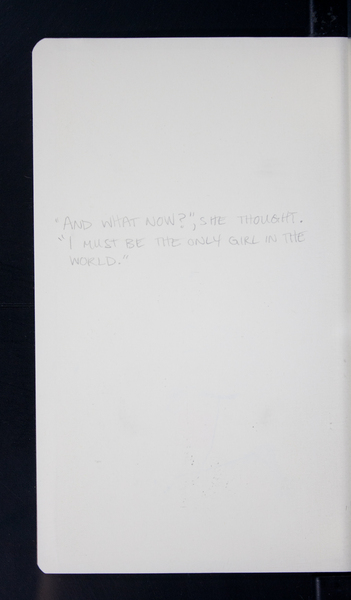 "AND WHAT NOW?", SHE THOUGHT.
"I MUST BE THE ONLY GIRL IN THE
WORLD."